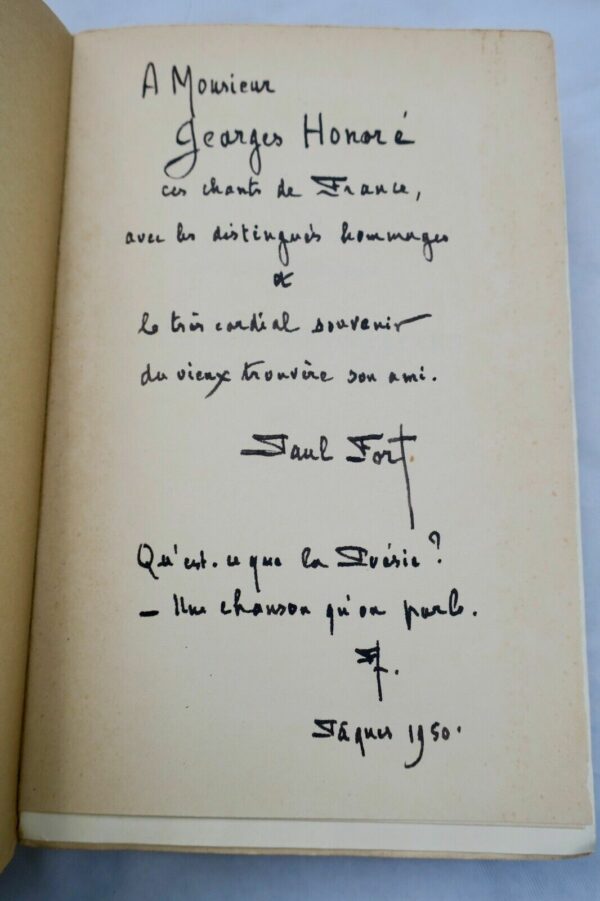 A Monsieur
Georges Honoré
ces chants de France,
avec les distingués hommages
&
le très cordial souvenir
du vieux trouvère son ami.
Paul Fort
Qu'est-ce que la Poésie ?
— Une chanson qu'on parle.
PF.
Pâques 1950.